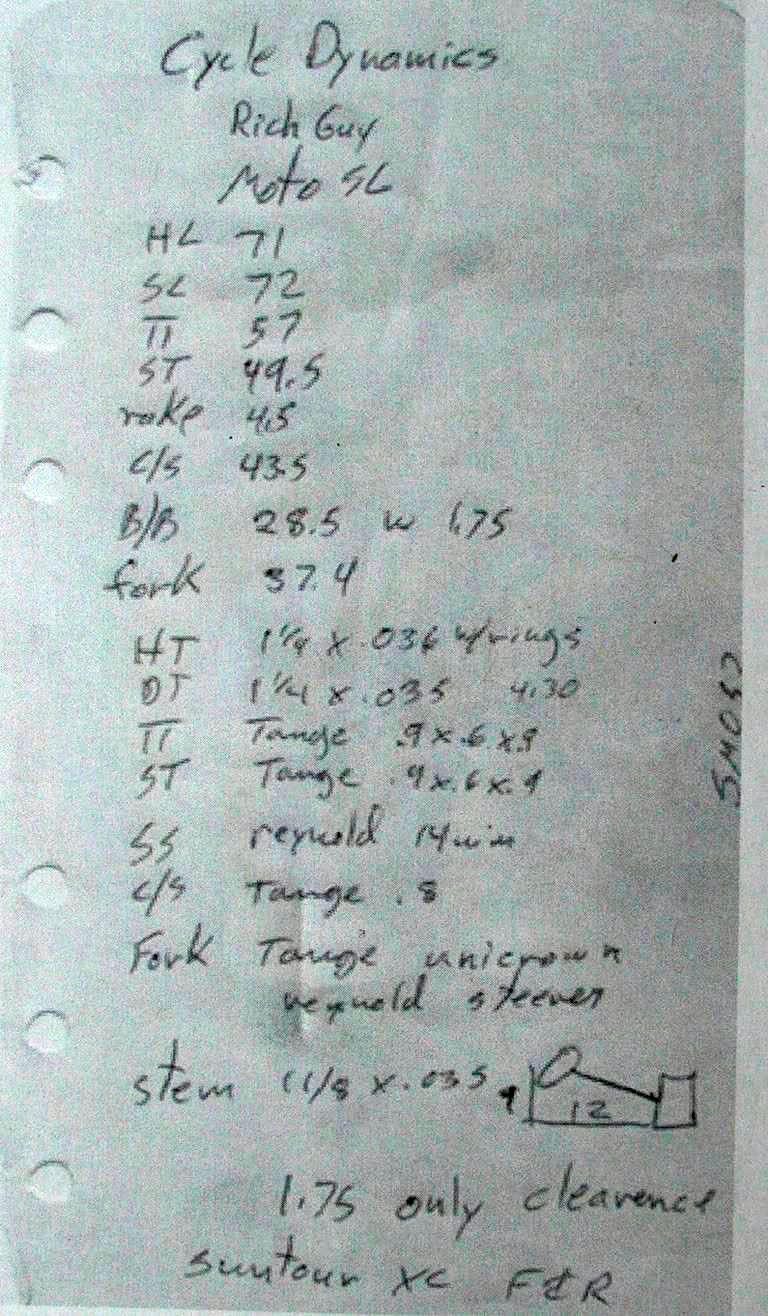 Cycle Dynamics
Rich Guy
Moto SL
H∠ 71
S∠ 72
TT 57
ST 49.5
rake 4.5
C/S 43.5
B/B 28.5 w 1.75
fork 37.4
HT 1 1/4 x .036 w/rings
DT 1 1/4 x .035 4130
TT Tange .9 x .6 x .9
ST Tange .9 x .6 x .9
SS reynold 14mm
C/S Tange .8
Fork Tange unicrown
reynold steerer
stem 1 1/8 x .035 9 12
1.75 only clearence
suntour XC F&R